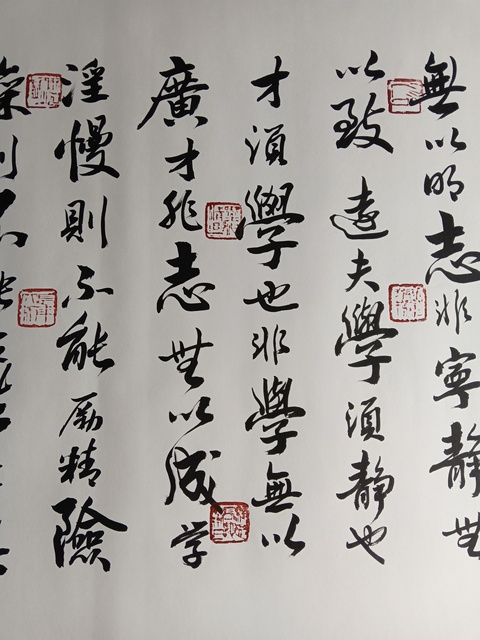 無以明志非寧静無
以致遠夫學須静也
才須學也非學無以
廣才非志無以成学
淫慢則不能励精險